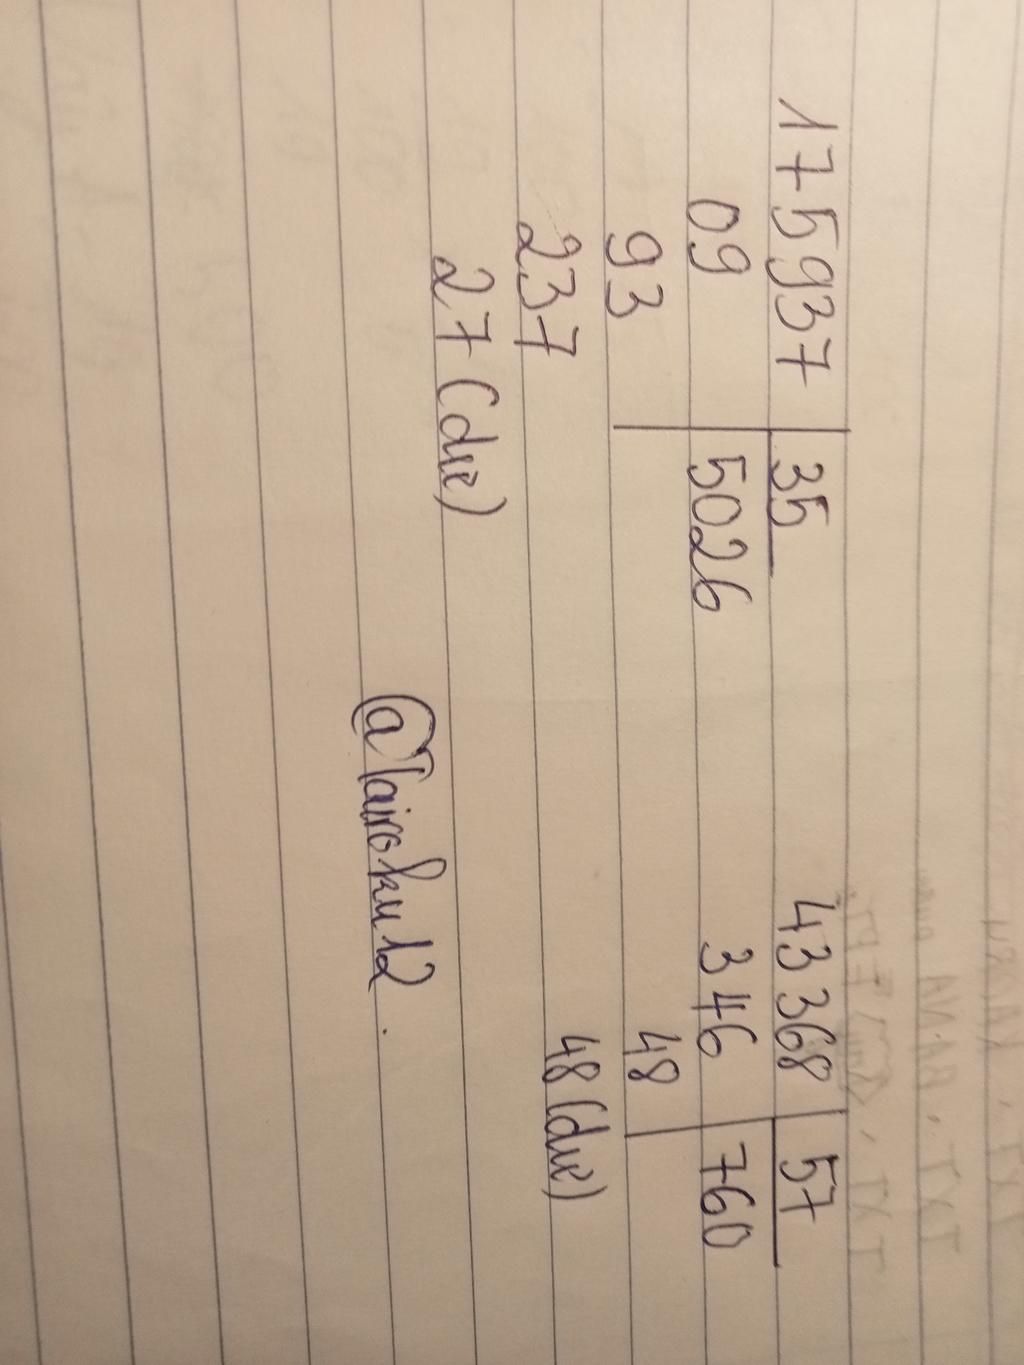 175937 35 43368 57
09 5026 346 760
93 48
237 48 (dư)
27 (dư)
@Tairoku12.